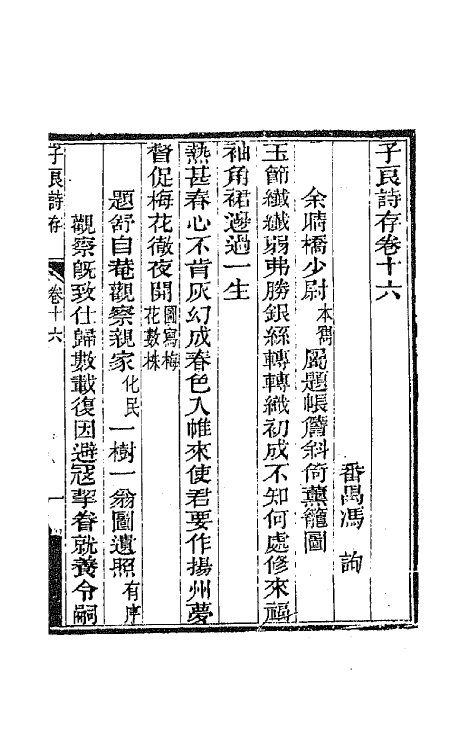 子良詩存卷十六
番禺馮詢
余晴橋少尉本雋屬題帳簷斜倚薰籠圖
玉節纖纖弱弗勝銀絲轉轉織初成不知何處修來福
袖角裙邊過一生
熱甚春心不肯灰幻成春色入帷來使君要作揚州夢
督促梅花徹夜開圖寫梅花數株
題舒自菴觀察親家化民一樹一翁圖遺照有序
觀察旣致仕歸數載復因避寇挈眷就養令嗣
子良詩存
卷十六
一